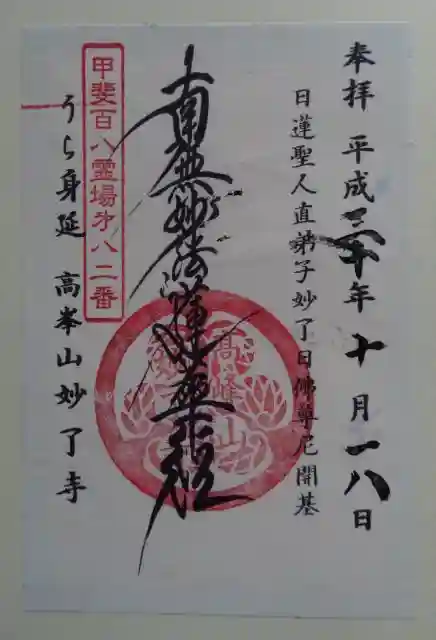 奉拝 平成三十年十月一八日
日蓮聖人直弟子妙了日佛尊尼開基
南無妙法蓮華経
甲斐百八霊場第八二番
うら身延 高峯山妙了寺